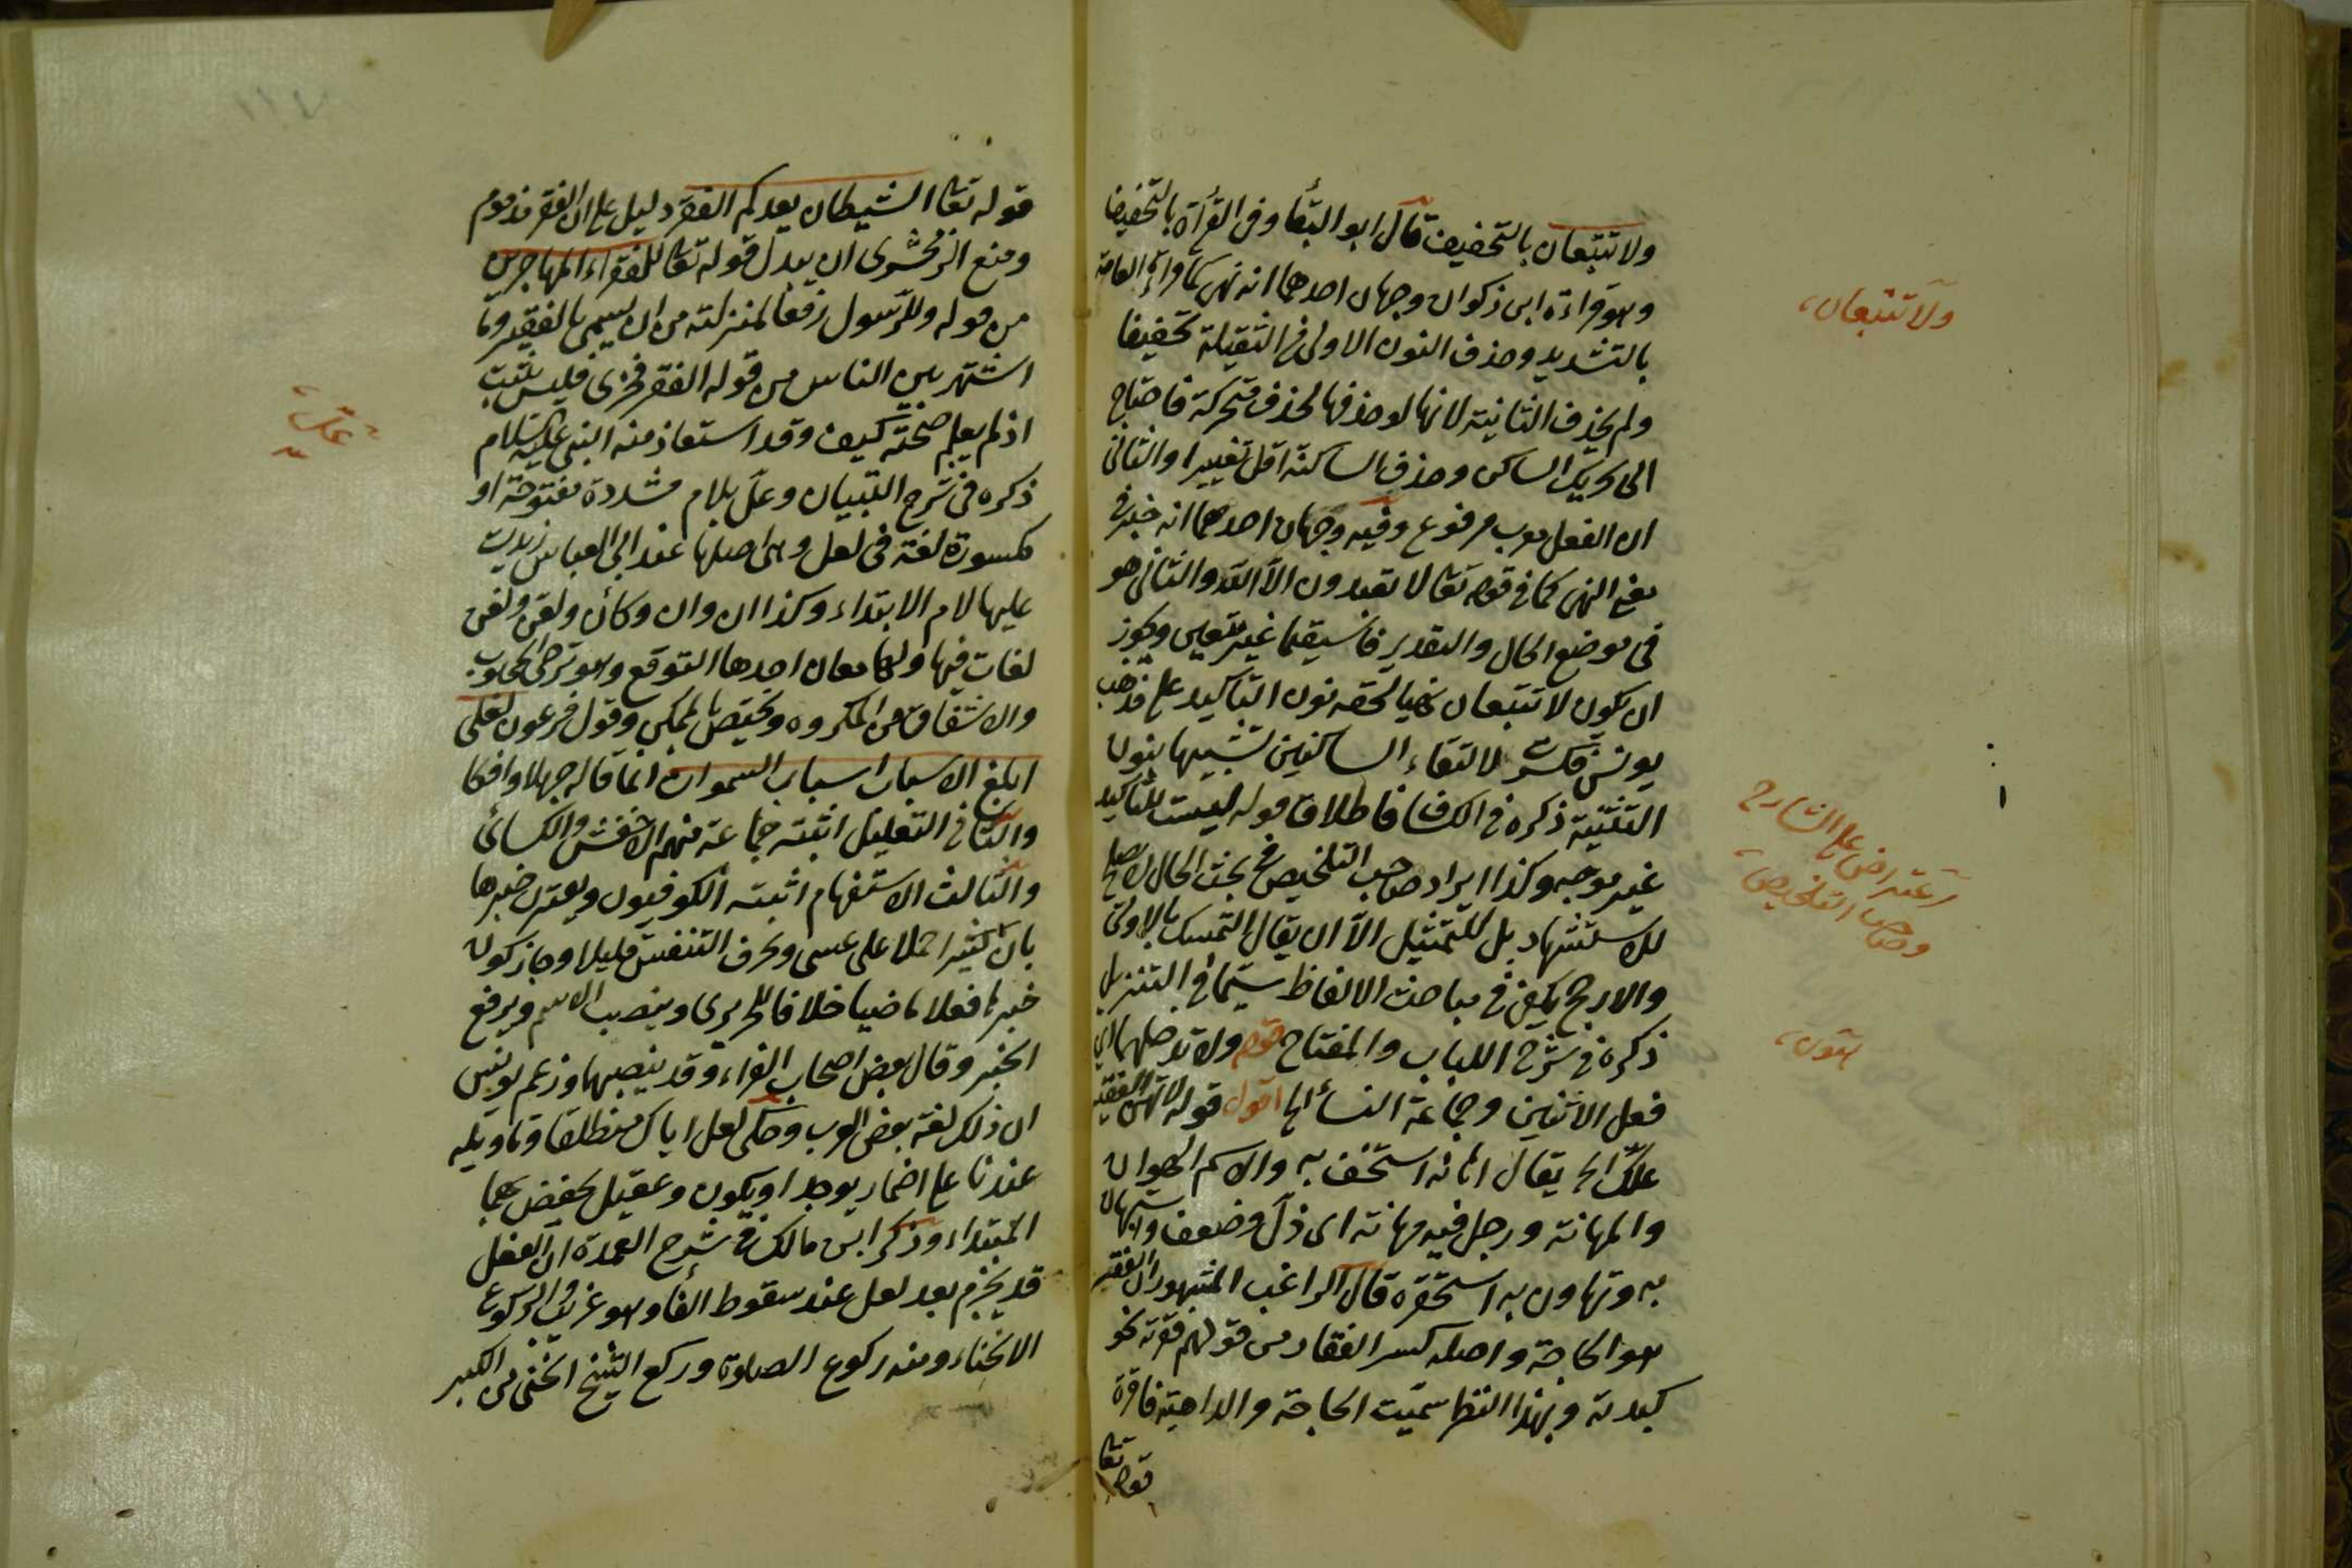 ولا تتبعان بالتخفيف قال ابو البقاء وفى القرأة بالتخفيف
وهو قراءة ابن ذكوان وجهان احدهما انه نهى كما فى قراءة العامة
بالتشديد وحذف النون الاولى فى الثقيلة تخفيفا
ولم يحذف الثانية لانها لو حذفها لحذف متحركة فاحتاج
الى تحريك الساكن وحذف الساكنة اقل تغييرا والثانى
ان الفعل معرب مرفوع وفيه وجهان احدهما انه خبر فى
معنى النهى كما فى قوله تعالى لا تعبدون الا الله والثانى هو
فى موضع الحال والتقدير فاستقيما غير متبعين ويجوز
ان يكون لا تتبعان نهيا لحقه نون التاكيد على مذهب
يونس فكسرت لالتقاء الساكنين تشبيها بنون
التثنية ذكره فى الكشاف فاطلاق قوله ليست للتأكيد
غير موجه وكذا ايراد صاحب التلخيص فى بحث الحال لا يصلح
للاستشهاد بل للتمثيل الا ان يقال التمسك بالاولى
والارجح يكفى فى مباحث الالفاظ سيما فى التنزيل
ذكره فى شرح اللباب والمفتاح قوله ولا تدخلهما اى
فعل الاثنين وجماعة النساء الخ اقول قوله لا تهين الفقير
علك الخ يقال اهانه استخف به والاسم الهوان
والمهانة ورجل فيه مهانة اى ذل وضعف واستهان
به وتهاون به استحقره قال الراغب المشهور ان الفقير
هو الحاجة واصله كسر الفقار من قولهم فقرته نحو
كبدته وبهذا النظر سميت الحاجة والداهية فاقرة
قوله تعالى
ولا تتبعان
اعتراض على الشارح
وصاحب التلخيص
تهين
قوله تعالى الشيطان يعدكم الفقر دليل على ان الفقر مذموم
ومنع الزمخشرى ان يبدل قوله تعالى للفقراء المهاجرين
من قوله وللرسول رفعا لمنزلته من ان يسمى بالفقير وما
اشتهر بين الناس من قوله الفقر فخرى فليس بثبت
اذ لم يعلم صحته كيف وقد استعاذ منه النبى عليه السلام
ذكره فى شرح التبيان وعل بلام مشددة مفتوحة او
مكسورة لغة فى لعل وهى اصلها عند ابى العباس زيدت
عليها لام الابتداء وكذا ان وان وكأن ولعن ولغن
لغات فيها ولها معان احدها التوقع وهو ترجى المحبوب
والاشفاق من المكروه وتختص بالممكن وقول فرعون لعلى
ابلغ الاسباب اسباب السموات انما قاله جهلا وافكا
والثانى التعليل اثبته جماعة منهم الاخفش والكسائى
والثالث الاستفهام اثبته الكوفيون ويقترن خبرها
بان كثيرا حملا على عسى وبحرف التنفيس قليلا وجاز كون
خبرها فعلا ماضيا خلافا للحريرى وينصب الاسم ويرفع
الخبر وقال بعض اصحاب الفراء وقد ينصبهما وزعم يونس
ان ذلك لغة بعض العرب وحكى لعل اباك منطلقا وتأويله
عندنا على اضمار يوجد او يكون وعقيل يخفض بها
المبتداء وذكر ابن مالك فى شرح العمدة ان الفعل
قد يجزم بعد لعل عند سقوط الفاء وهو غريب والركوع
الانحناء ومنه ركوع الصلوة وركع الشيخ انحنى من الكبر
علك